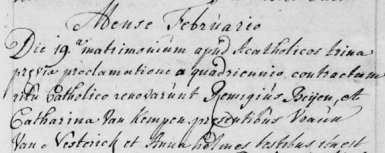 Mense Februario
Die 19.a matrimonium apud Acatholicos trina
prævia proclamatione a quadriennio contractum
ritu Catholico renovarunt Remigius Beijen, et
Catharina Van Kempen. præsentibus
Van Nesterick et Anna holmes testibus